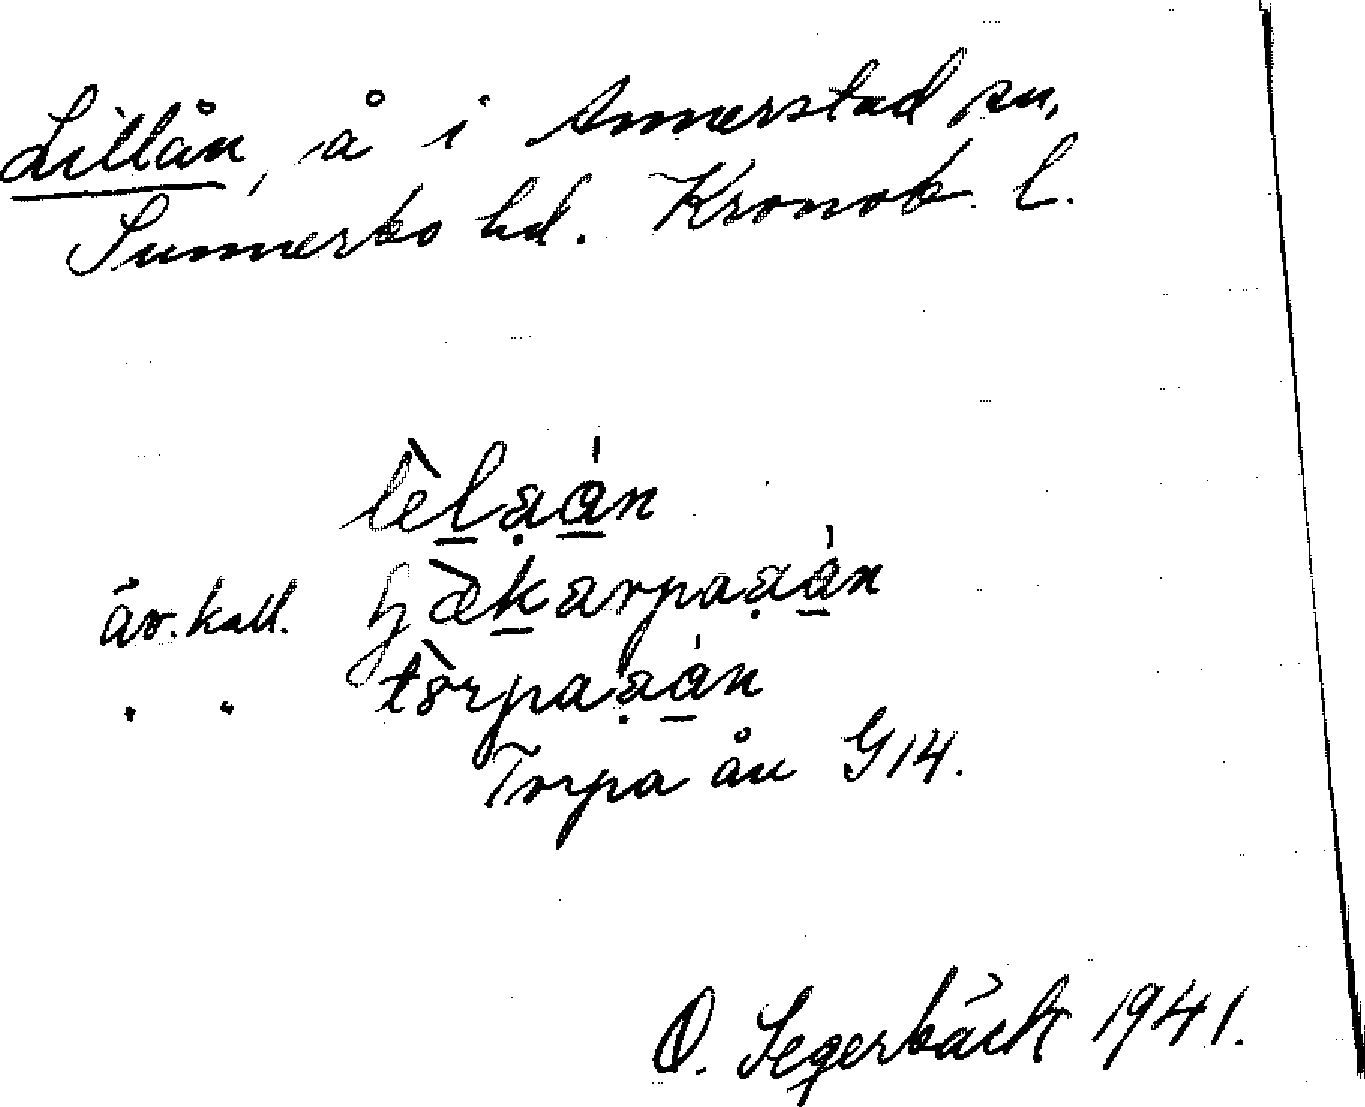 Lillån, å i Annerstad sn,
Sunnerbo hd. Kronob. l.
lèl̲ạa̲̍n
äv. kall. hæ̀k̲arpaạa̲̍n
" " tòrpaạa̲̍n
Torpa ån G14.
O. Segerbäck 1941.